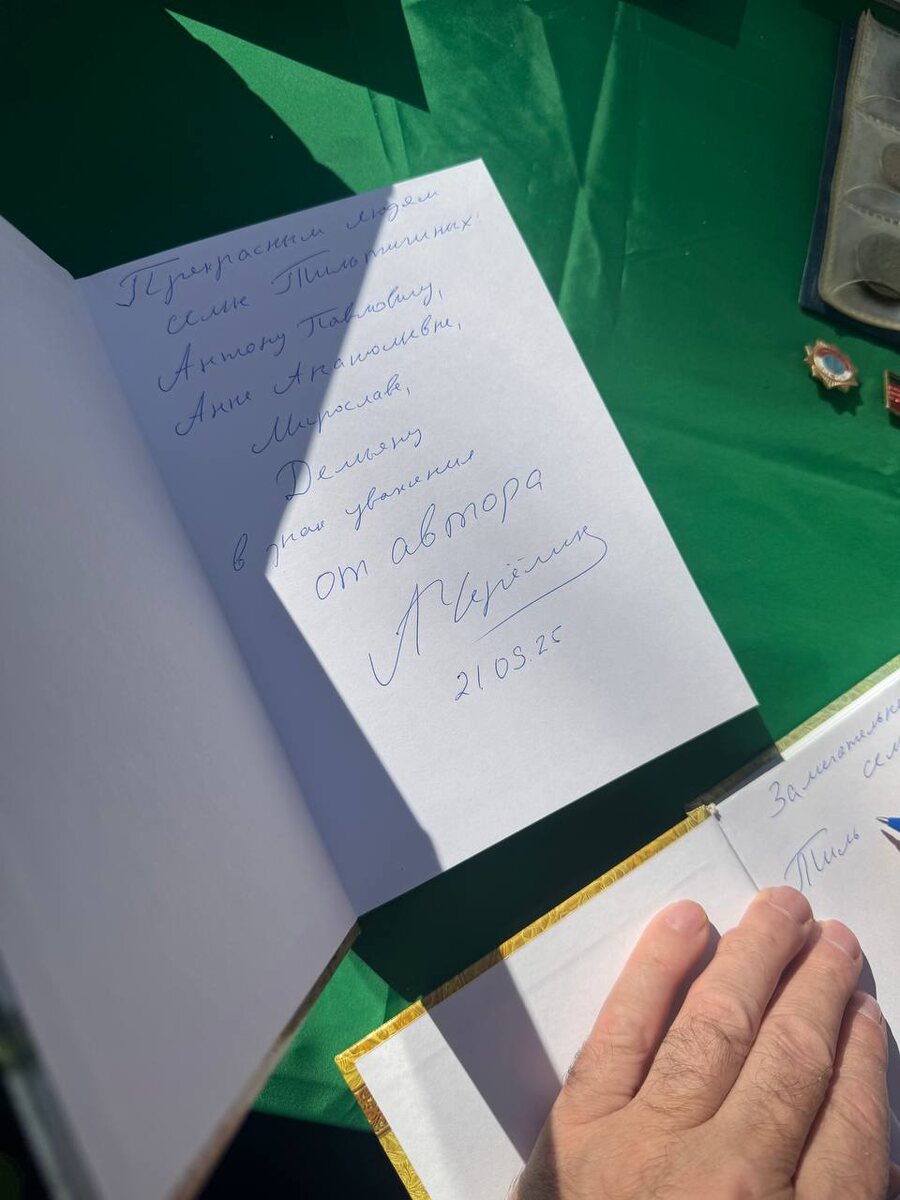 Прекрасным людям
семье Пильтичиных:
Антону Павловичу,
Анне Анатольевне,
Мирославе,
Демьяну
в знак уважения
от автора
21 09.25
Замечательно
сем
Пиль